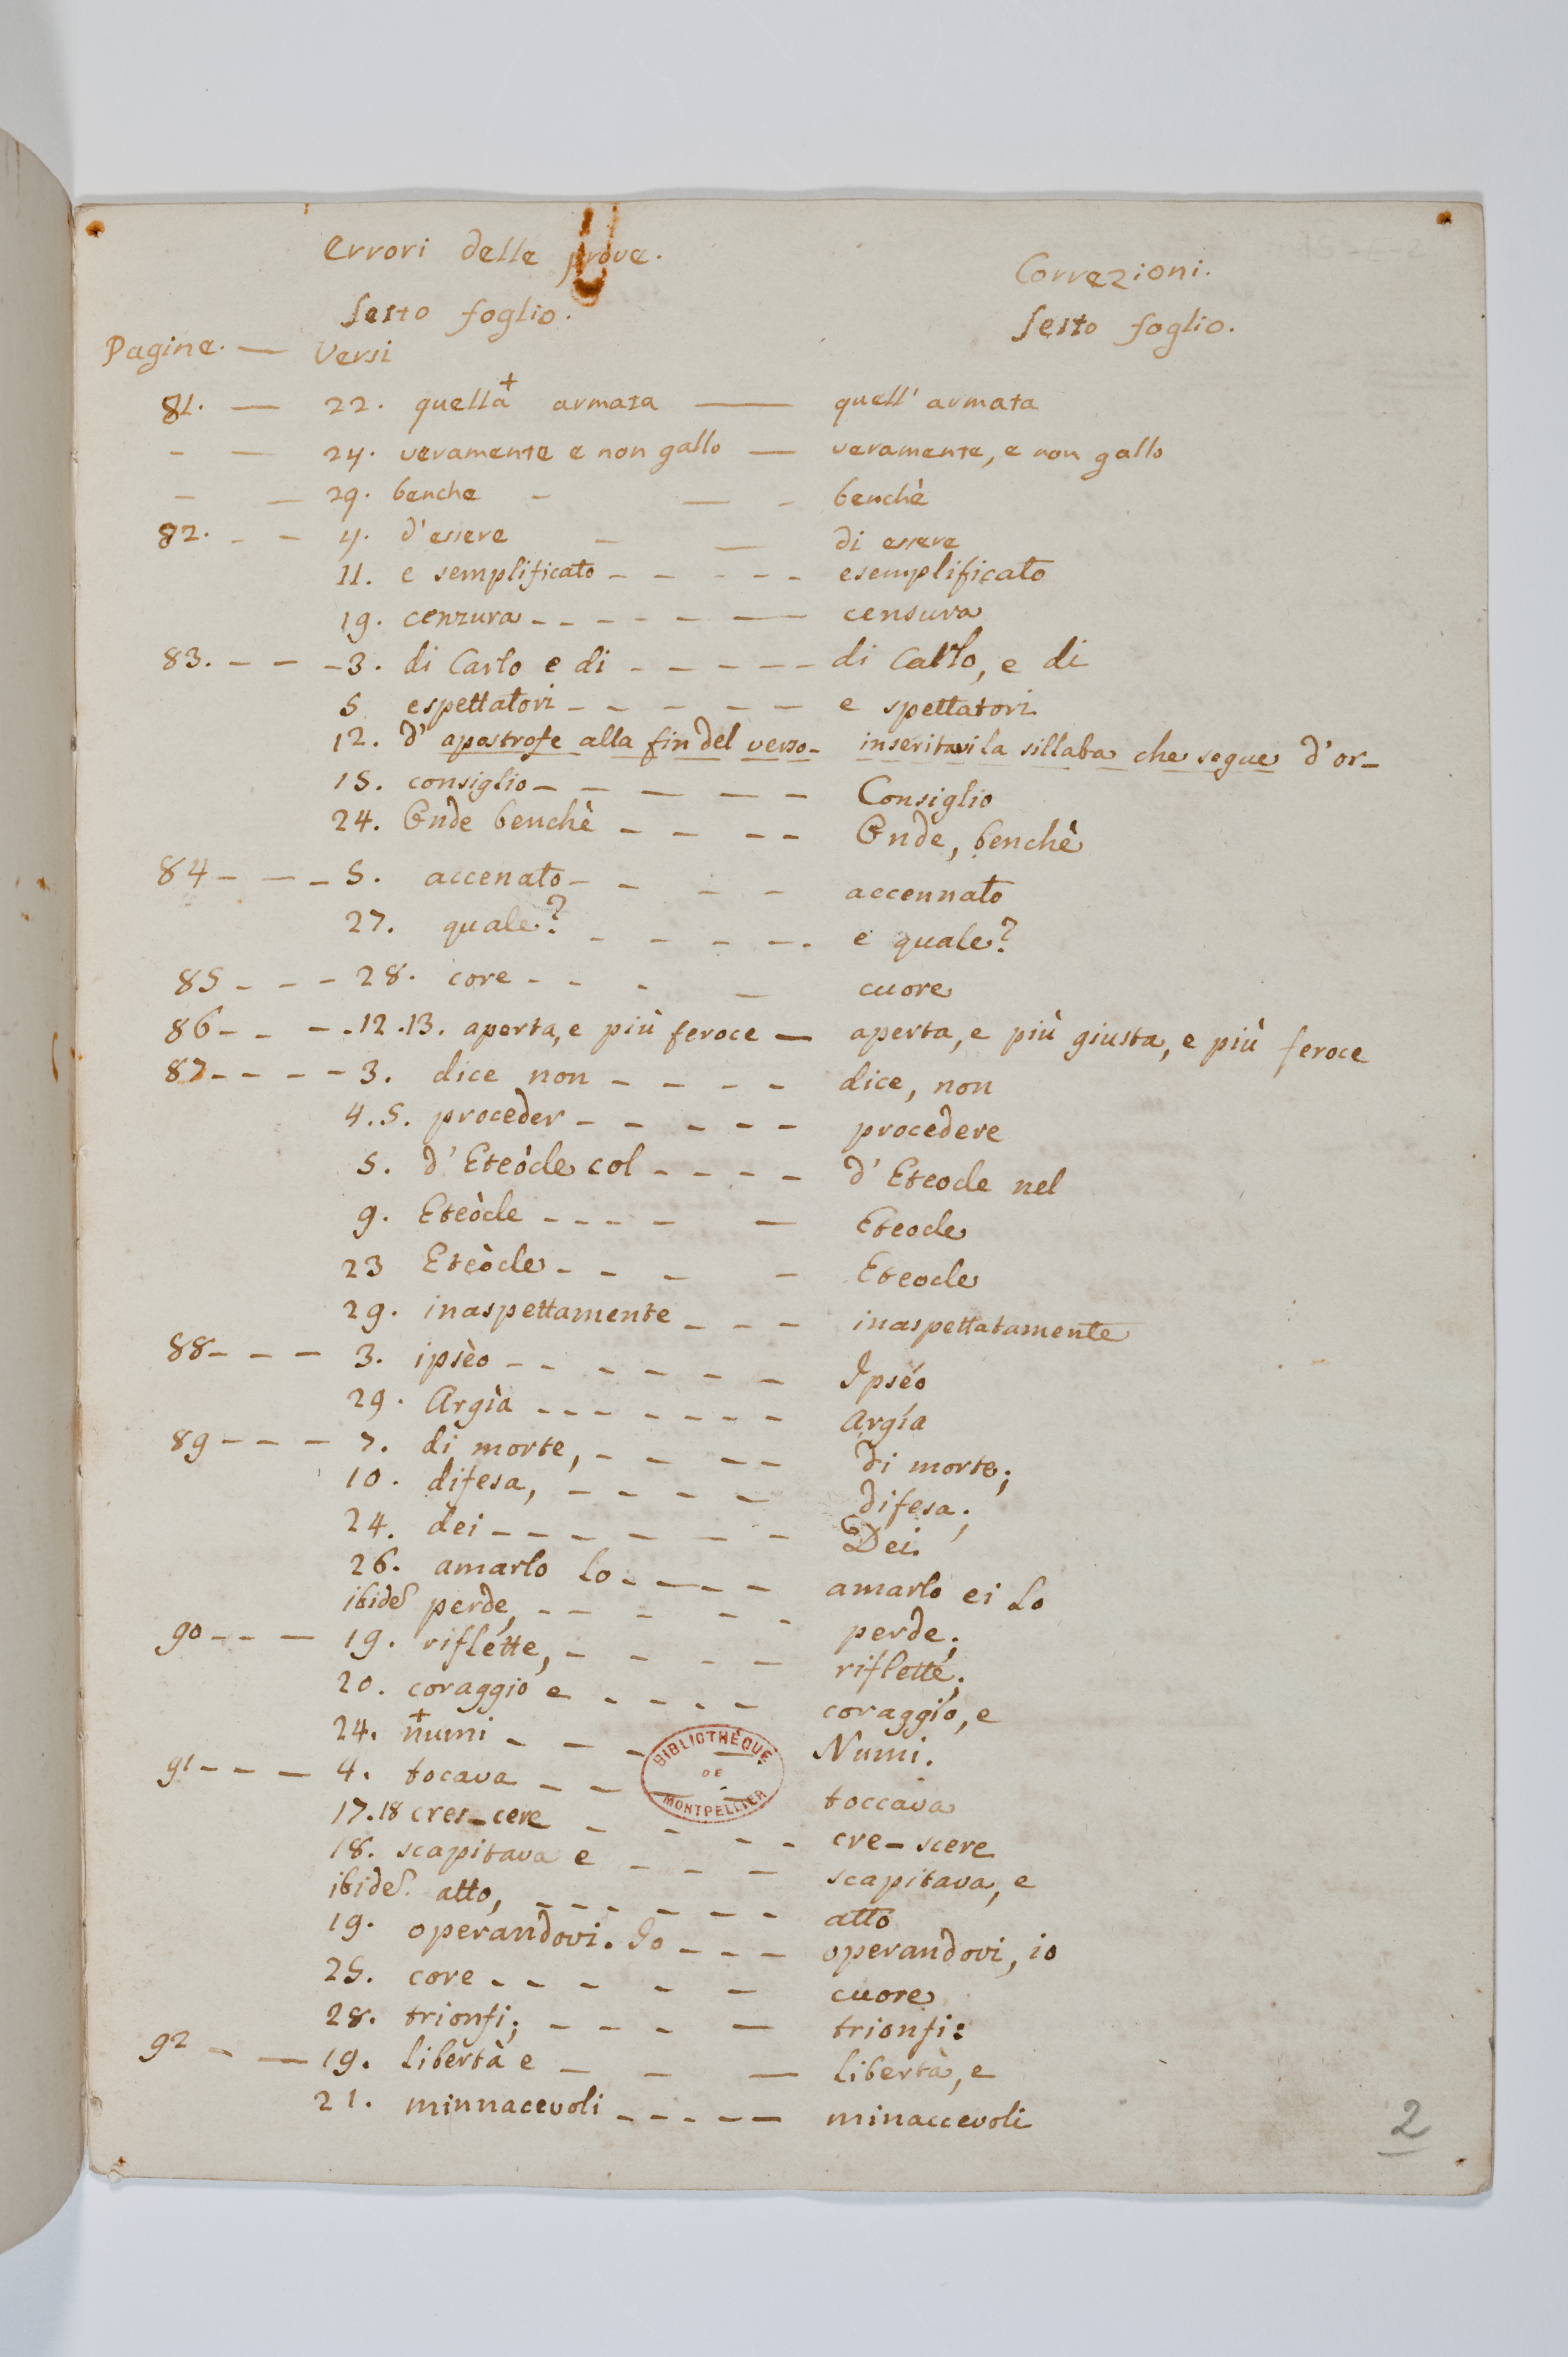 Errori delle prove. Correzioni.
Sesto foglio. Sesto foglio.
Pagine. — Versi
81. — 22. quella+ armata — quell' armata
- — 24. veramente e non gallo — veramente, e non gallo
- — 29. benche - — - benchè
82. - - 4. d'essere - — di essere
11. e semplificato - - - - - esemplificato
19. cenzura - - - - - — censura
83. - - - 3. di Carlo e di - - - - - di Carlo, e di
5 espettatori - - - - - e spettatori
12. d' apostrofe alla fin del verso - inseritavi la sillaba che segue d'or-
15. consiglio - - - - - Consiglio
24. Onde benchè - - - - Onde, benchè
84 - - - 5. accenato - - - - accennato
27. quale? - - - - . e quale?
85 - - - 28. core - - - — cuore
86 - - - . 12.13. aperta, e più feroce — aperta, e più giusta, e più feroce
87 - - - - 3. dice non - - - - dice, non
4.5. proceder - - - - - procedere
5. d' Eteòcle col - - - - d' Eteocle nel
9. Eteòcle - - - - — Eteocle
23 Eteòcle - - - - Eteocle
29. inaspettamente - - - inaspettatamente
88 - - - 3. ipsèo - - - - - - Ipséo
29. Argìa - - - - - - - Argía
89 - - - 7. di morte, - - - - di morte;
10. difesa, - - - - - difesa;
24. dei - - - - - - Dei.
26. amarlo lo - - - - amarlo ei lo
ibide perde, - - - - - perde;
90 - - — 19. riflétte, - - - - riflette;
20. coraggio e - - - - coraggio, e
24. +numi - - - - Numi.
91 - - - 4. tocava - - - - toccava
17.18 cres-cere - - - - - cre-scere
18. scapitava e - - - scapitava, e
ibide. atto, - - - - - - atto
19. operandovi. Io - - - operandovi, io
25. core - - - - - cuore
28. trionfi; - - - — trionfi:
92 - — 19. libertà e - - — libertà, e
21. minnacevoli - - - - — minaccevoli
BIBLIOTHÈQUE
DE
MONTPELLIER
2